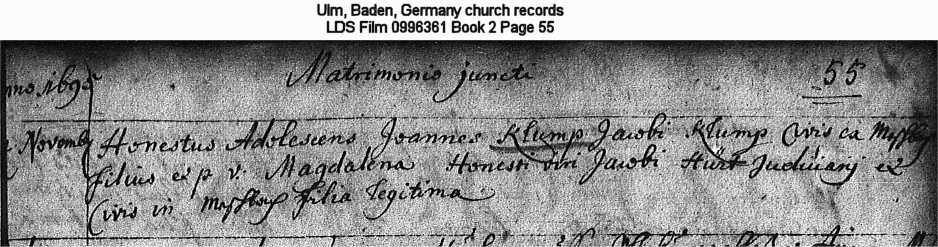 Ulm, Baden, Germany church records
LDS Film 0996361 Book 2 Page 55
Matrimonio juncti 55
Novemb Honestus Adolescens Joannes Klump Jacobi Klump Civis ca
filius et p v: Magdalena Honesti viri Jacobi Hürt Judiciarij et
Civis in filia legitima